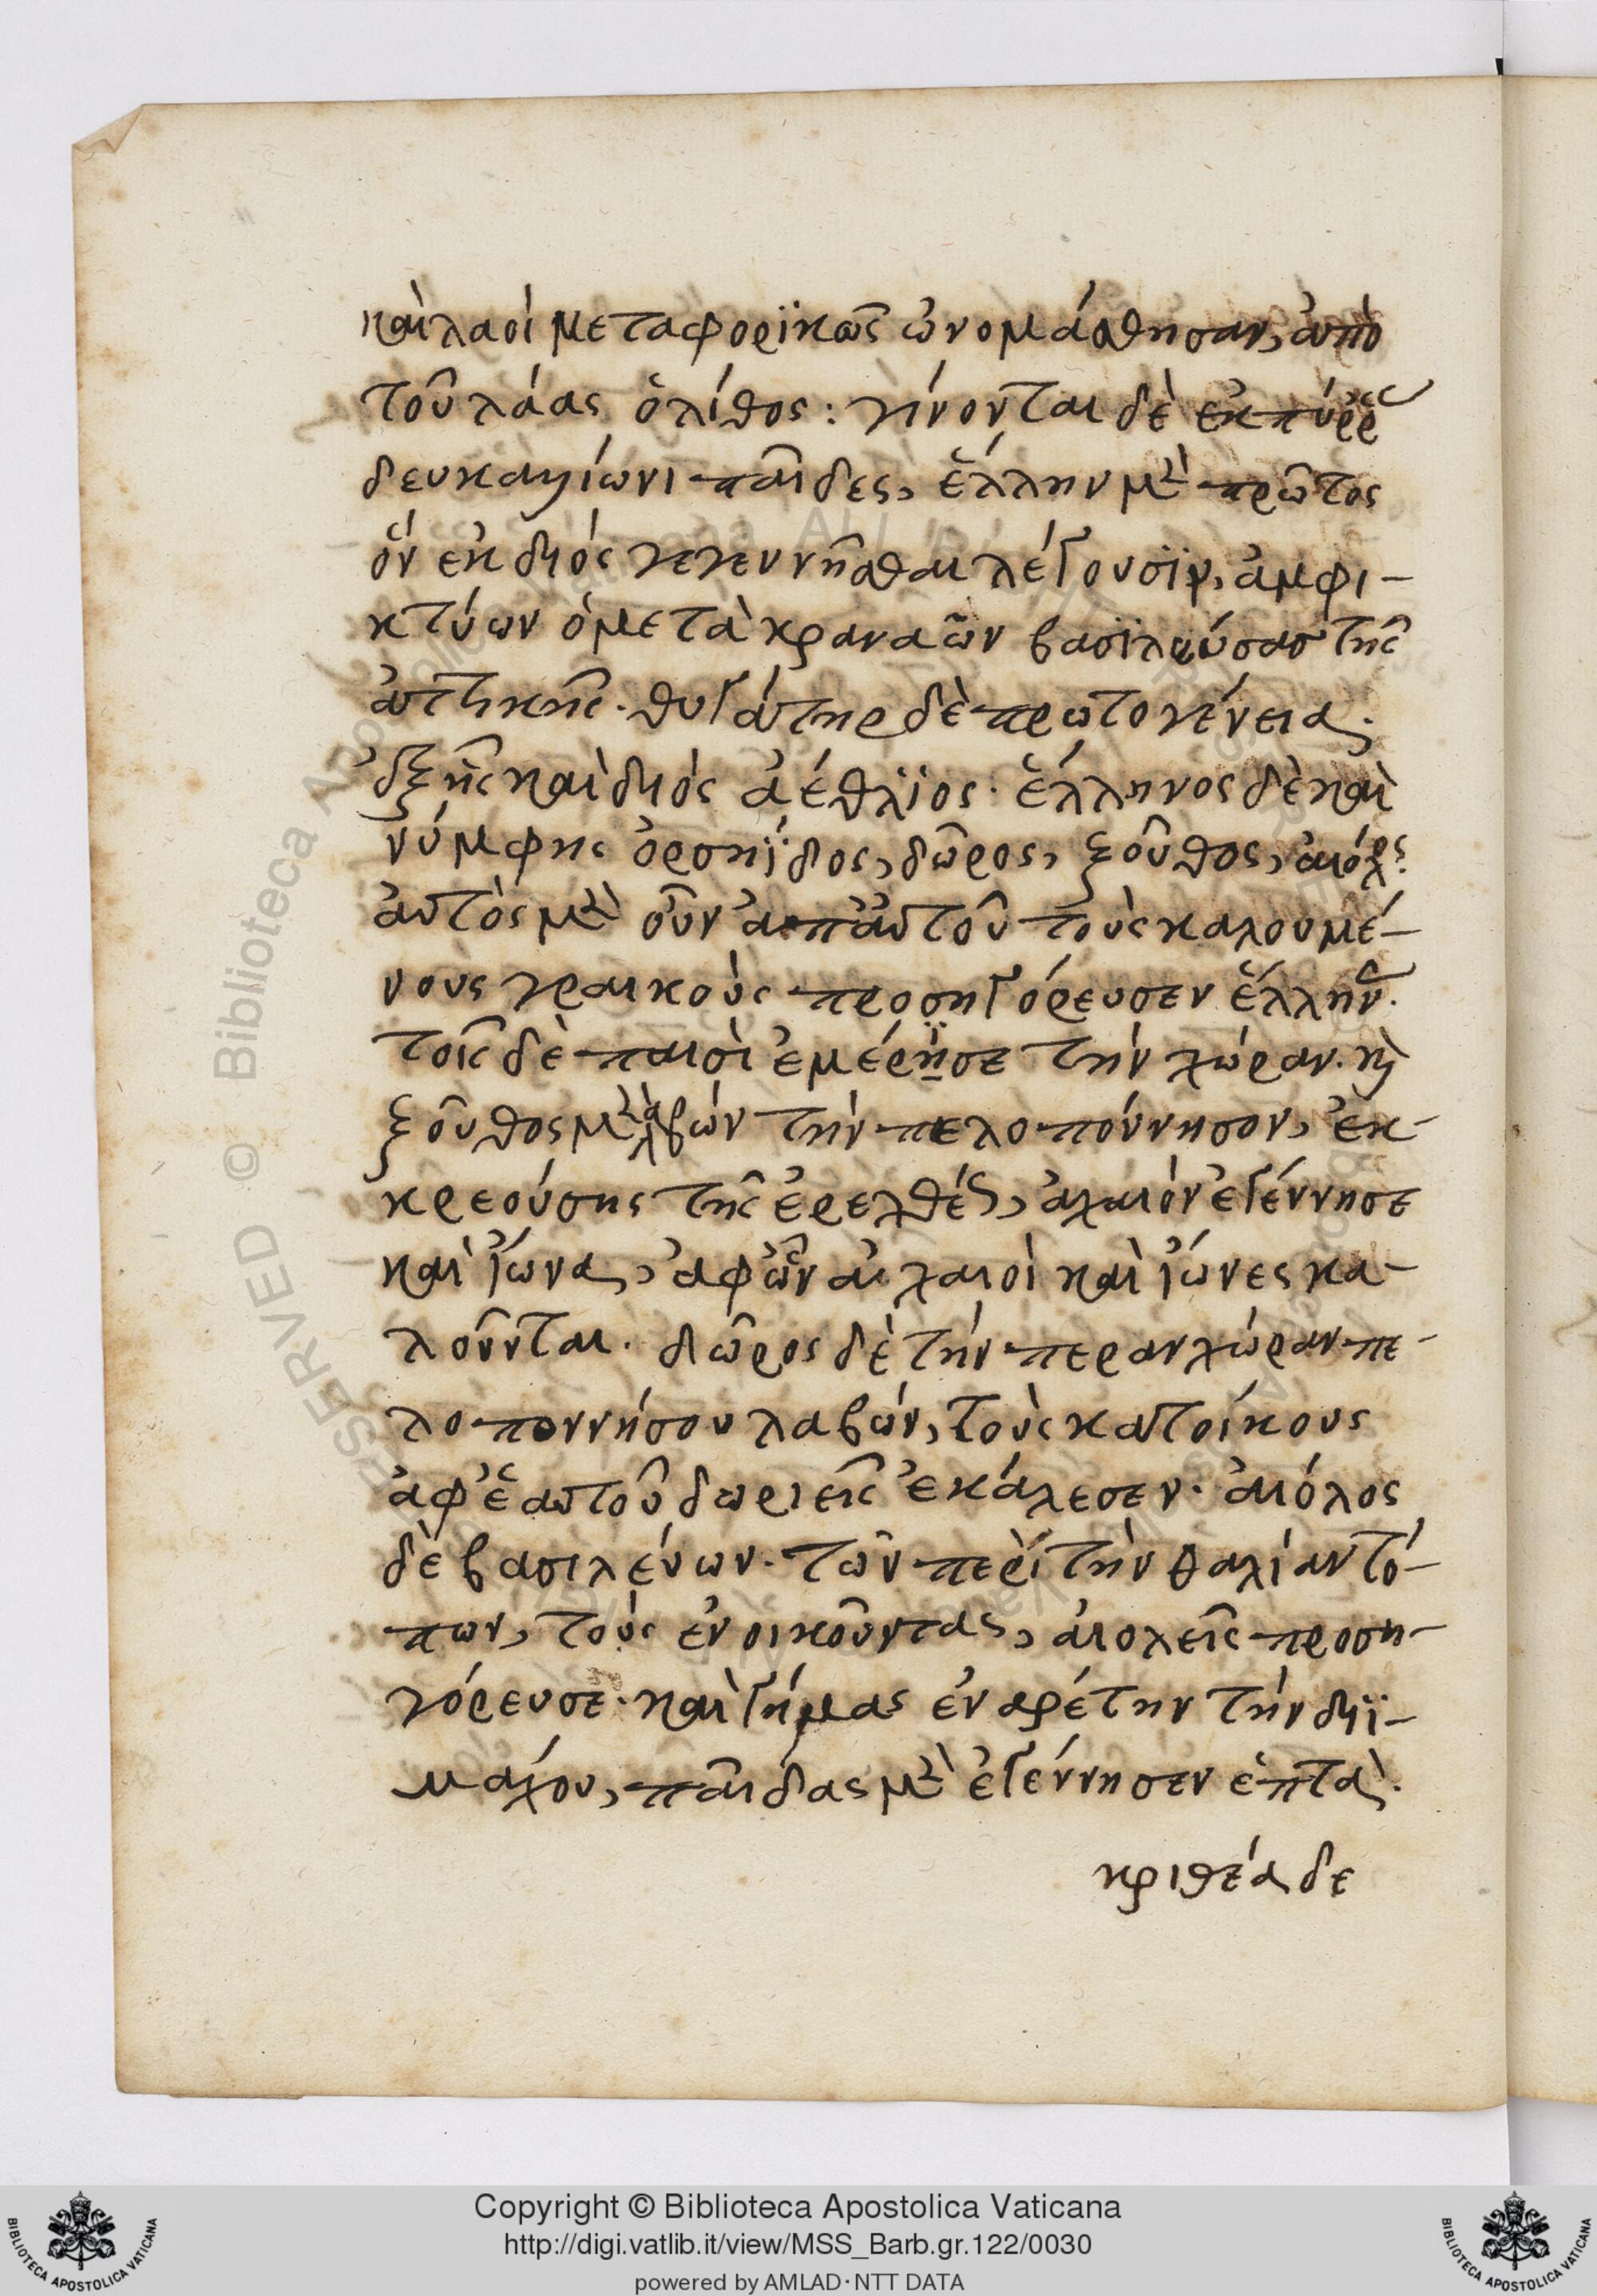 καὶ λαοὶ μεταφορϊκῶς ὠνομάσθησαν, ἀπὸ
τοῦ λάας ὁ λίθος : γίνονται δὲ ἐκ πύρρας
δευκαλίωνι παῖδες, ἕλλην μὲν πρῶτος
ὃν ἐκ διὸς γεγεννῆσθαι λέγουσϊν, ἀμφι-
κτύων ὁ μετὰ κραναῶν βασϊλεύσας τῆς
ἀττικῆς. θυγάτηρ δὲ πρωτογένεια.
ἐξ ἧς καὶ διὸς ἀέθλϊος. ἕλληνος δὲ καὶ
νύμφης ὀρσηΐδος, δῶρος, ξοῦθος, αἴολος.
αὐτὸς μὲν οὖν ἀπ' αὐτοῦ τοὺς καλουμέ-
νους γραικοὺς προσηγόρευσεν ἕλληνας.
τοῖς δὲ παισὶ ἐμέρησε τὴν χώραν. καὶ
ξοῦθος μὲν λαβὼν τὴν πελοπόννησον, ἐκ
κρεούσης τῆς ἐρεχθέως, ἀχαιὸν ἐγέννησε
καὶ ἴωνα, ἀφ' ὧν ἀχαιοὶ καὶ ἴωνες κα-
λοῦνται. δῶρος δὲ τὴν περαν χώραν πε-
λοποννήσου λαβὼν, τοὺς κατοίκους
ἀφ' ἑαυτοῦ δωριεῖς ἐκάλεσεν. αἰόλος
δὲ βασιλεύων τῶν περὶ τὴν θαλίαν τό-
πων, τοὺς ἐνοικοῦντας, αἰολεῖς προση-
γόρευσε. καὶ γήμας ἐναρέτην τὴν δηϊ-
μάχου, παῖδας μὲν ἐγέννησεν ἑπτὰ.
κριθέα δε
Copyright © Biblioteca Apostolica Vaticana
http://digi.vatlib.it/view/MSS_Barb.gr.122/0030
powered by AMLAD·NTT DATA
BIBLIOTECA APOSTOLICA VATICANA
BIBLIOTECA APOSTOLICA VATICANA